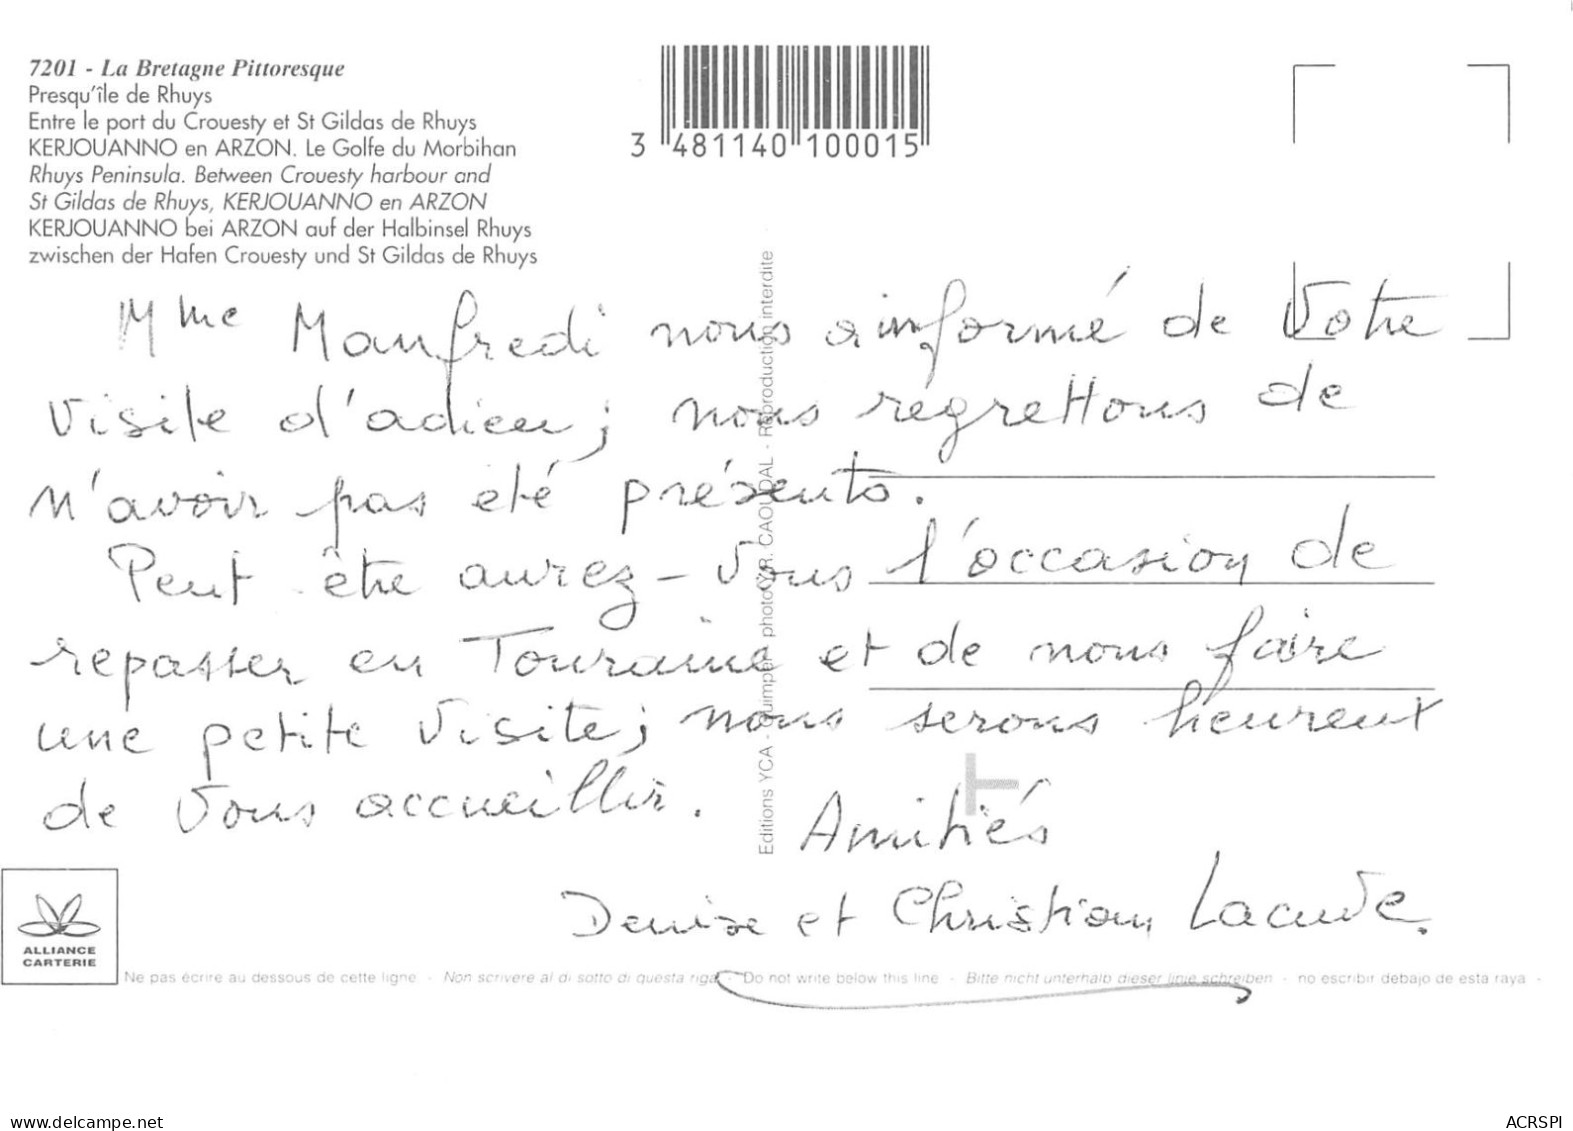 7201 - La Bretagne Pittoresque
Presqu'île de Rhuys
Entre le port du Crouesty et St Gildas de Rhuys
KERJOUANNO en ARZON. Le Golfe du Morbihan
Rhuys Peninsula. Between Crouesty harbour and
St Gildas de Rhuys, KERJOUANNO en ARZON
KERJOUANNO bei ARZON auf der Halbinsel Rhuys
zwischen der Hafen Crouesty und St Gildas de Rhuys
3 481140 100015
Mme Manfredi nous a informé de Votre
visite d'adieu; nous regrettons de
n'avoir pas été présents.
Peut être aurez-vous l'occasion de
repasser en Touraine et de nous faire
une petite visite; nous serons heureux
de vous accueillir.
Amitiés
Denise et Christian
Editions YCA - Quimper - photo Y.R. CAOUDAL - Reproduction interdite
ALLIANCE
CARTERIE
Ne pas écrire au dessous de cette ligne - Non scrivere al di sotto di questa riga - Do not write below this line - Bitte nicht unterhalb dieser linie schreiben - no escribir debajo de esta raya -
www.delcampe.net
ACRSPI